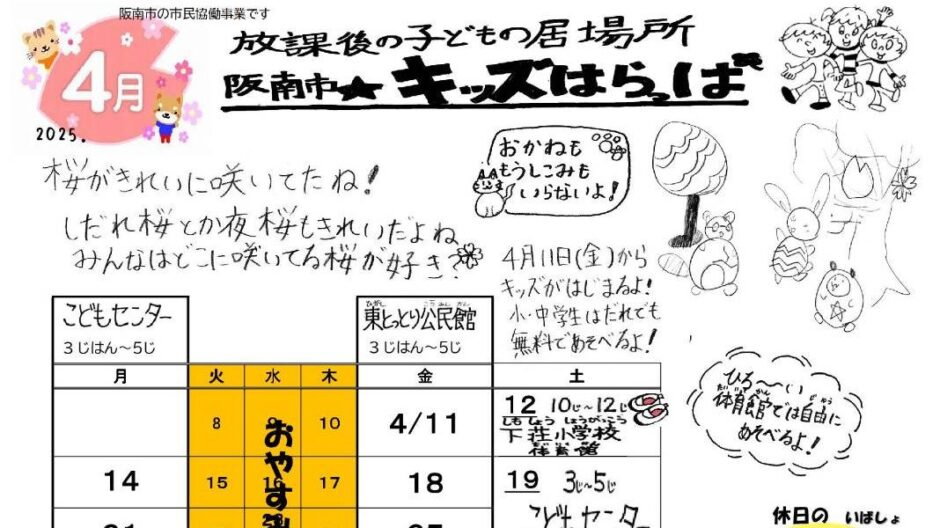 阪南市の市民協働事業です
4月
2025.
放課後の子どもの居場所
阪南市★キッズはらっぱ
おかねも
もうしこみも
いらないよ!
桜がきれいに咲いてたね!
しだれ桜とか夜桜もきれいだよね
みんなはどこに咲いてる桜が好き?
4月11日(金)から
キッズがはじまるよ!
小・中学生はだれでも
無料であそべるよ!
こどもセンター
3じはん~5じ
ひがし こうみんかん
東とっとり公民館
3じはん~5じ
月 火 水 木 金 土
8 10 4/11 12 10じ~12じ
しもしょうしょうがっこう
下荘小学校
体育館
おやす
14 15 16 17 18 19 3じ~5じ
こどもセンター
ひろ~~い
たいいくかん じゆう
体育館では自由に
あそべるよ!
休日の いばしょ